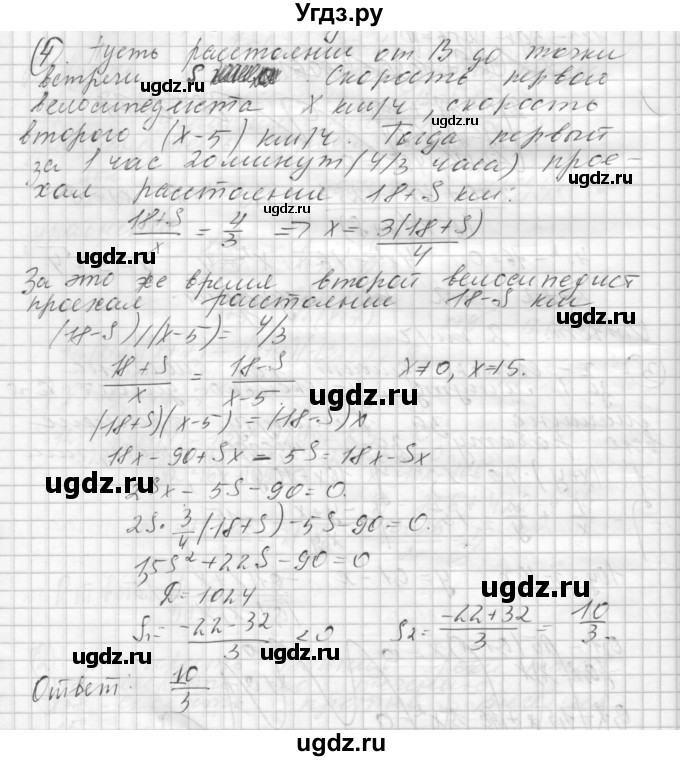 Угдз.ру
④ Пусть расстояние от В до точки
встречи S Скорость первого
велосипедиста x км/ч, скорость
второго (x-5) км/ч. Тогда первый
за 1 час 20 минут (4/3 часа) прое-
хал расстояние 18+S км:
(18+S)/x = 4/3 => x = 3(18+S)/4
За это же время второй велосипедист
проехал расстояние 18-S км
(18-S)/(x-5) = 4/3
(18+S)/x = (18-S)/(x-5) x≠0, x≠5.
(18+S)(x-5) = (18-S)x
18x - 90 + Sx - 5S = 18x - Sx
2Sx - 5S - 90 = 0.
2S · 3/4 (18+S) - 5S - 90 = 0.
1,5S² + 22S - 90 = 0
D = 1024
S₁ = (-22-32)/3 < 0 S₂ = (-22+32)/3 = 10/3.
Ответ: 10/3
угдз.ру
угдз.ру
угдз.ру
угдз.ру
угдз.ру
угдз.ру
угдз.ру
угдз.ру
угдз.ру
угдз.ру
угдз.ру
угдз.ру
угдз.ру